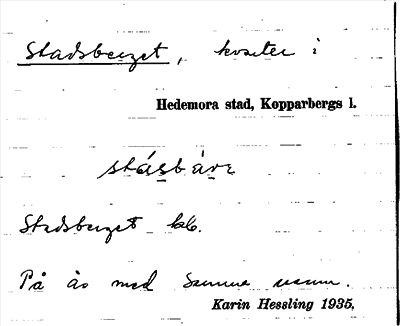 Stadsberget, kvarter i
Hedemora stad, Kopparbergs l.
stásbárr
Stadsberget kb.
På ås med samma namn.
Karin Hessling 1935.